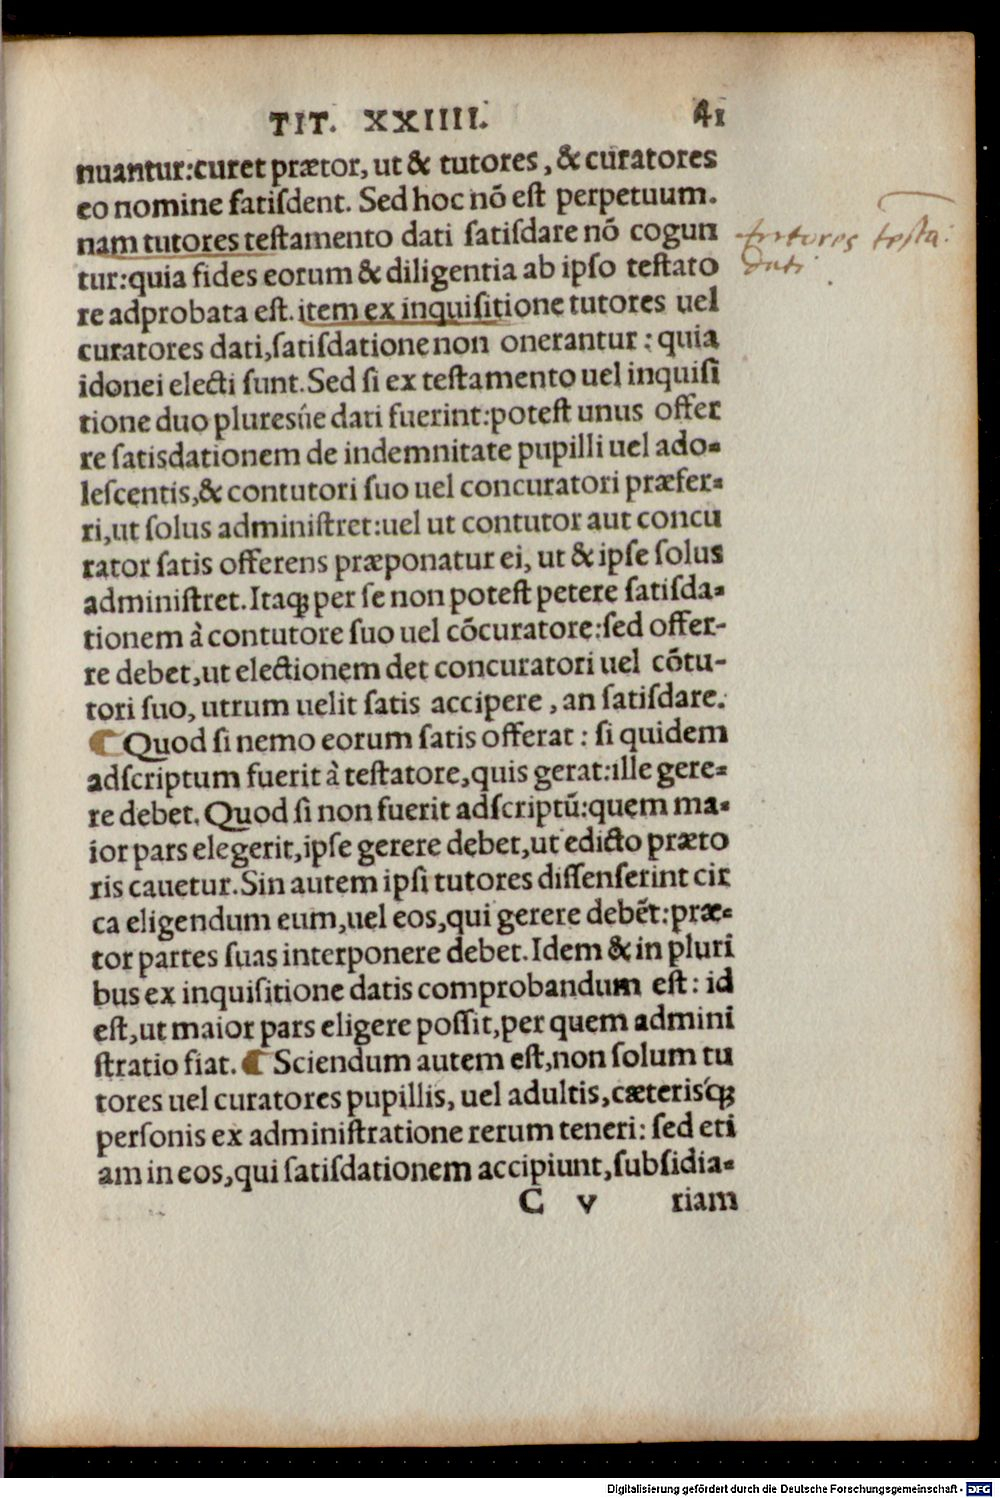 TIT. XXIIII. 41
nuantur:curet prætor, ut & tutores, & curatores
eo nomine ſatiſdent. Sed hoc nõ eſt perpetuum.
nam tutores teſtamento dati ſatiſdare nõ cogun
tutores testa:
dati
tur:quia fides eorum & diligentia ab ipſo teſtato
re adprobata eſt. item ex inquiſitione tutores uel
curatores dati,ſatiſdatione non onerantur: quia
idonei electi ſunt. Sed ſi ex teſtamento uel inquiſi
tione duo pluresûe dati fuerint:poteſt unus offer
re ſatisdationem de indemnitate pupilli uel ado-
leſcentis,& contutori ſuo uel concuratori præfer-
ri,ut ſolus adminiſtret:uel ut contutor aut concu
rator ſatis offerens præponatur ei, ut & ipſe ſolus
adminiſtret. Itaqꝫ per ſe non poteſt petere ſatiſda-
tionem à contutore ſuo uel cõcuratore:ſed offer-
re debet,ut electionem det concuratori uel cõtu-
tori ſuo, utrum uelit ſatis accipere, an ſatiſdare.
¶ Quod ſi nemo eorum ſatis offerat: ſi quidem
adſcriptum fuerit à teſtatore,quis gerat:ille gere-
re debet. Quod ſi non fuerit adſcriptũ:quem ma-
ior pars elegerit,ipſe gerere debet,ut edicto præto
ris cauetur. Sin autem ipſi tutores diſſenſerint cir
ca eligendum eum,uel eos,qui gerere debẽt:præ-
tor partes ſuas interponere debet. Idem & in pluri
bus ex inquiſitione datis comprobandum eſt: id
eſt,ut maior pars eligere poſſit,per quem admini
ſtratio fiat. ¶ Sciendum autem eſt,non ſolum tu
tores uel curatores pupillis, uel adultis,cæterisq́ꝫ
perſonis ex adminiſtratione rerum teneri: ſed eti
am in eos,qui ſatiſdationem accipiunt,ſubſidia-
C v riam
Digitalisierung gefördert durch die Deutsche Forschungsgemeinschaft - DFG